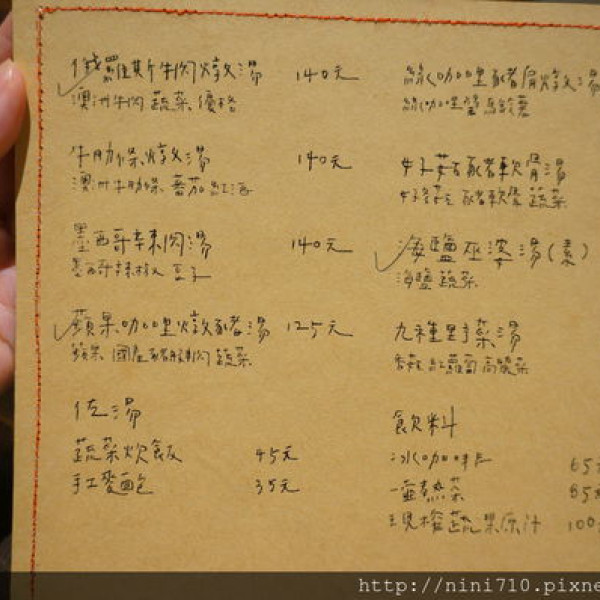 俄羅斯牛肉燉湯 140元
澳洲牛肉 蔬菜 優格
牛肋條燉湯 140元
澳洲牛肋條 蕃茄 紅酒
墨西哥辣肉湯 140元
墨西哥辣椒 豆子
蘋果咖哩燉豬湯 125元
蘋果 國產豬腱肉 蔬菜
佐湯
蔬菜炊飯 45元
手工麥麵包 35元
綠咖哩豬肩燉湯
綠咖哩醬 馬鈴薯
好菇豬軟骨湯
好菇 豬軟骨 蔬菜
海鹽巫婆湯(素)
海鹽 蔬菜
九種野菜湯
香菇 紅蘿蔔 高麗菜
飲料
冰咖啡 65元
一壺熱茶 85元
現榨蔬果原汁 100元
http://nini710.pixne